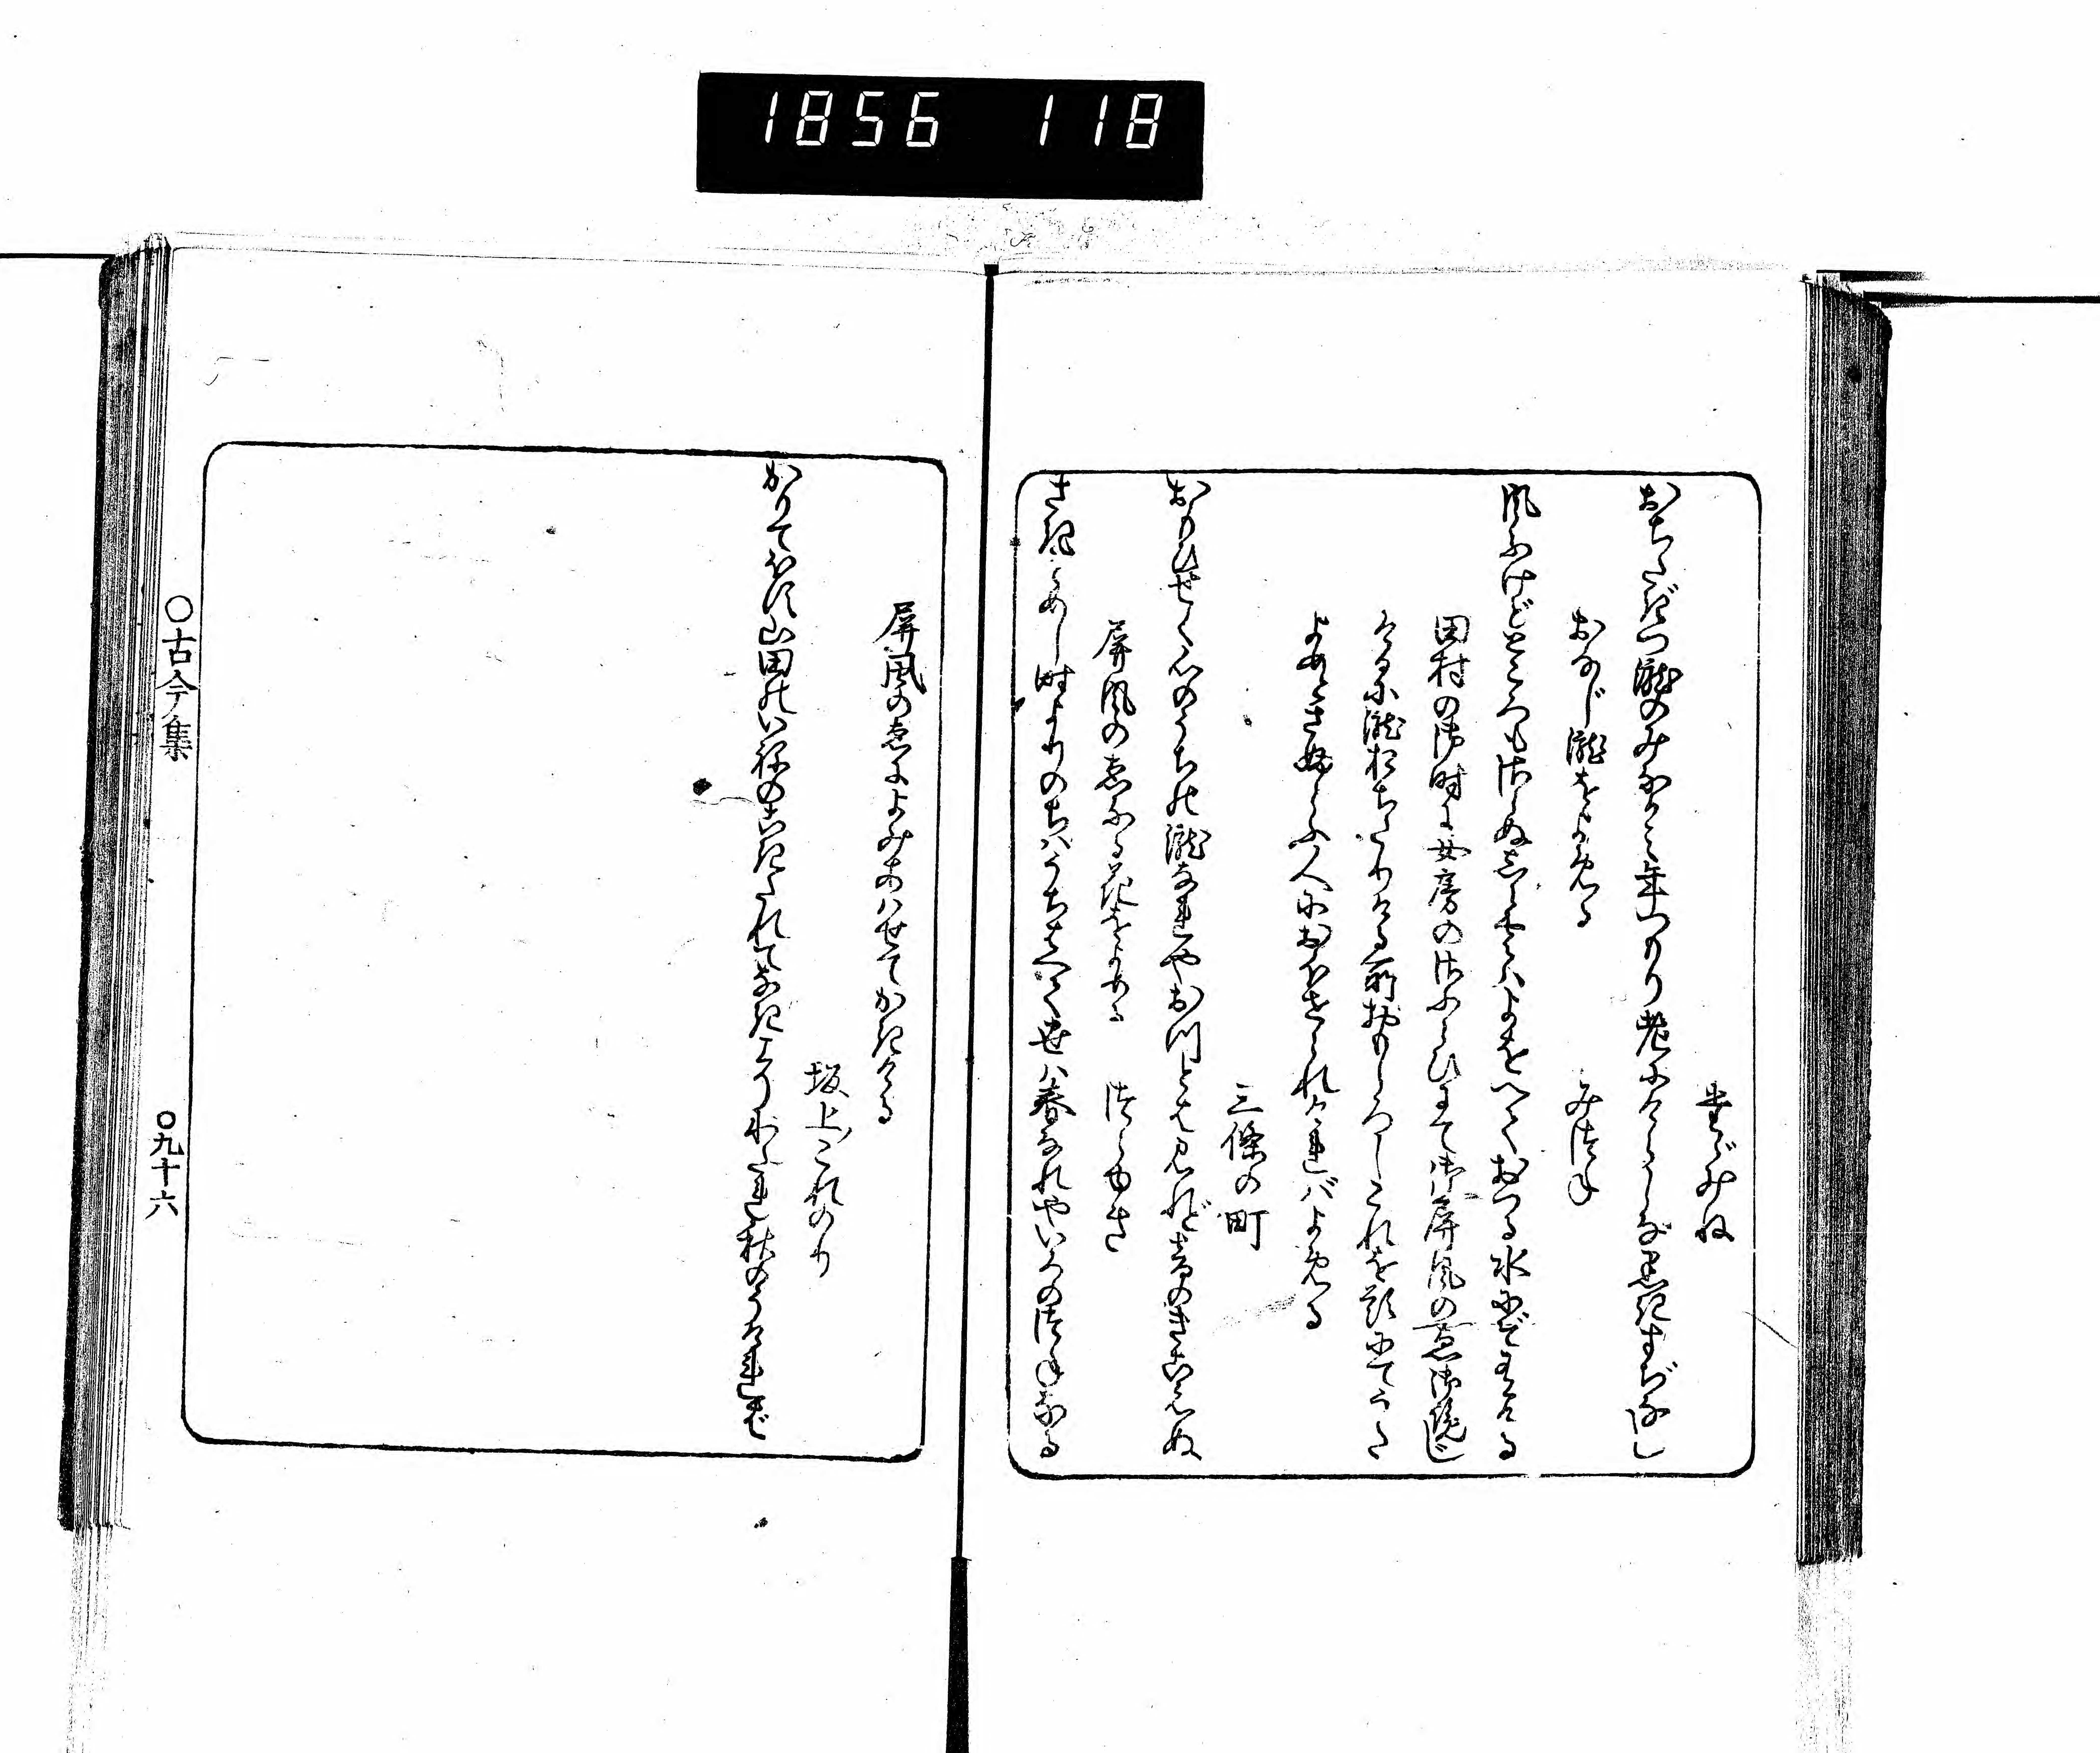 1856 118
たゞみね
おちたぎつ瀧のみなかみ年つもり老にけらしな黒きすぢなし
おなじ瀧をよめる
みつね
風ふけどところもさらぬしら雲はよをへておつる水にぞ有ける
田村の御時に女房のさふらひにて御屏風の絵御覧じ
けるに瀧おちたりける所おもしろしこれを題にてうた
よめとさぶらふ人におほせられければよめる
三條の町
おもひせく心のうちの瀧なれやおつとは見れど音のきこえぬ
屏風のゑなる花をよめる
つらゆき
さきそめし時よりのちはうちはへて世は春なれやいろのつねなる
屏風のゑによみあはせてかきける
坂上これのり
かりてほす山田のいねのこきたれてなきこそわたれ秋のうければ
〇古今集
〇九十六